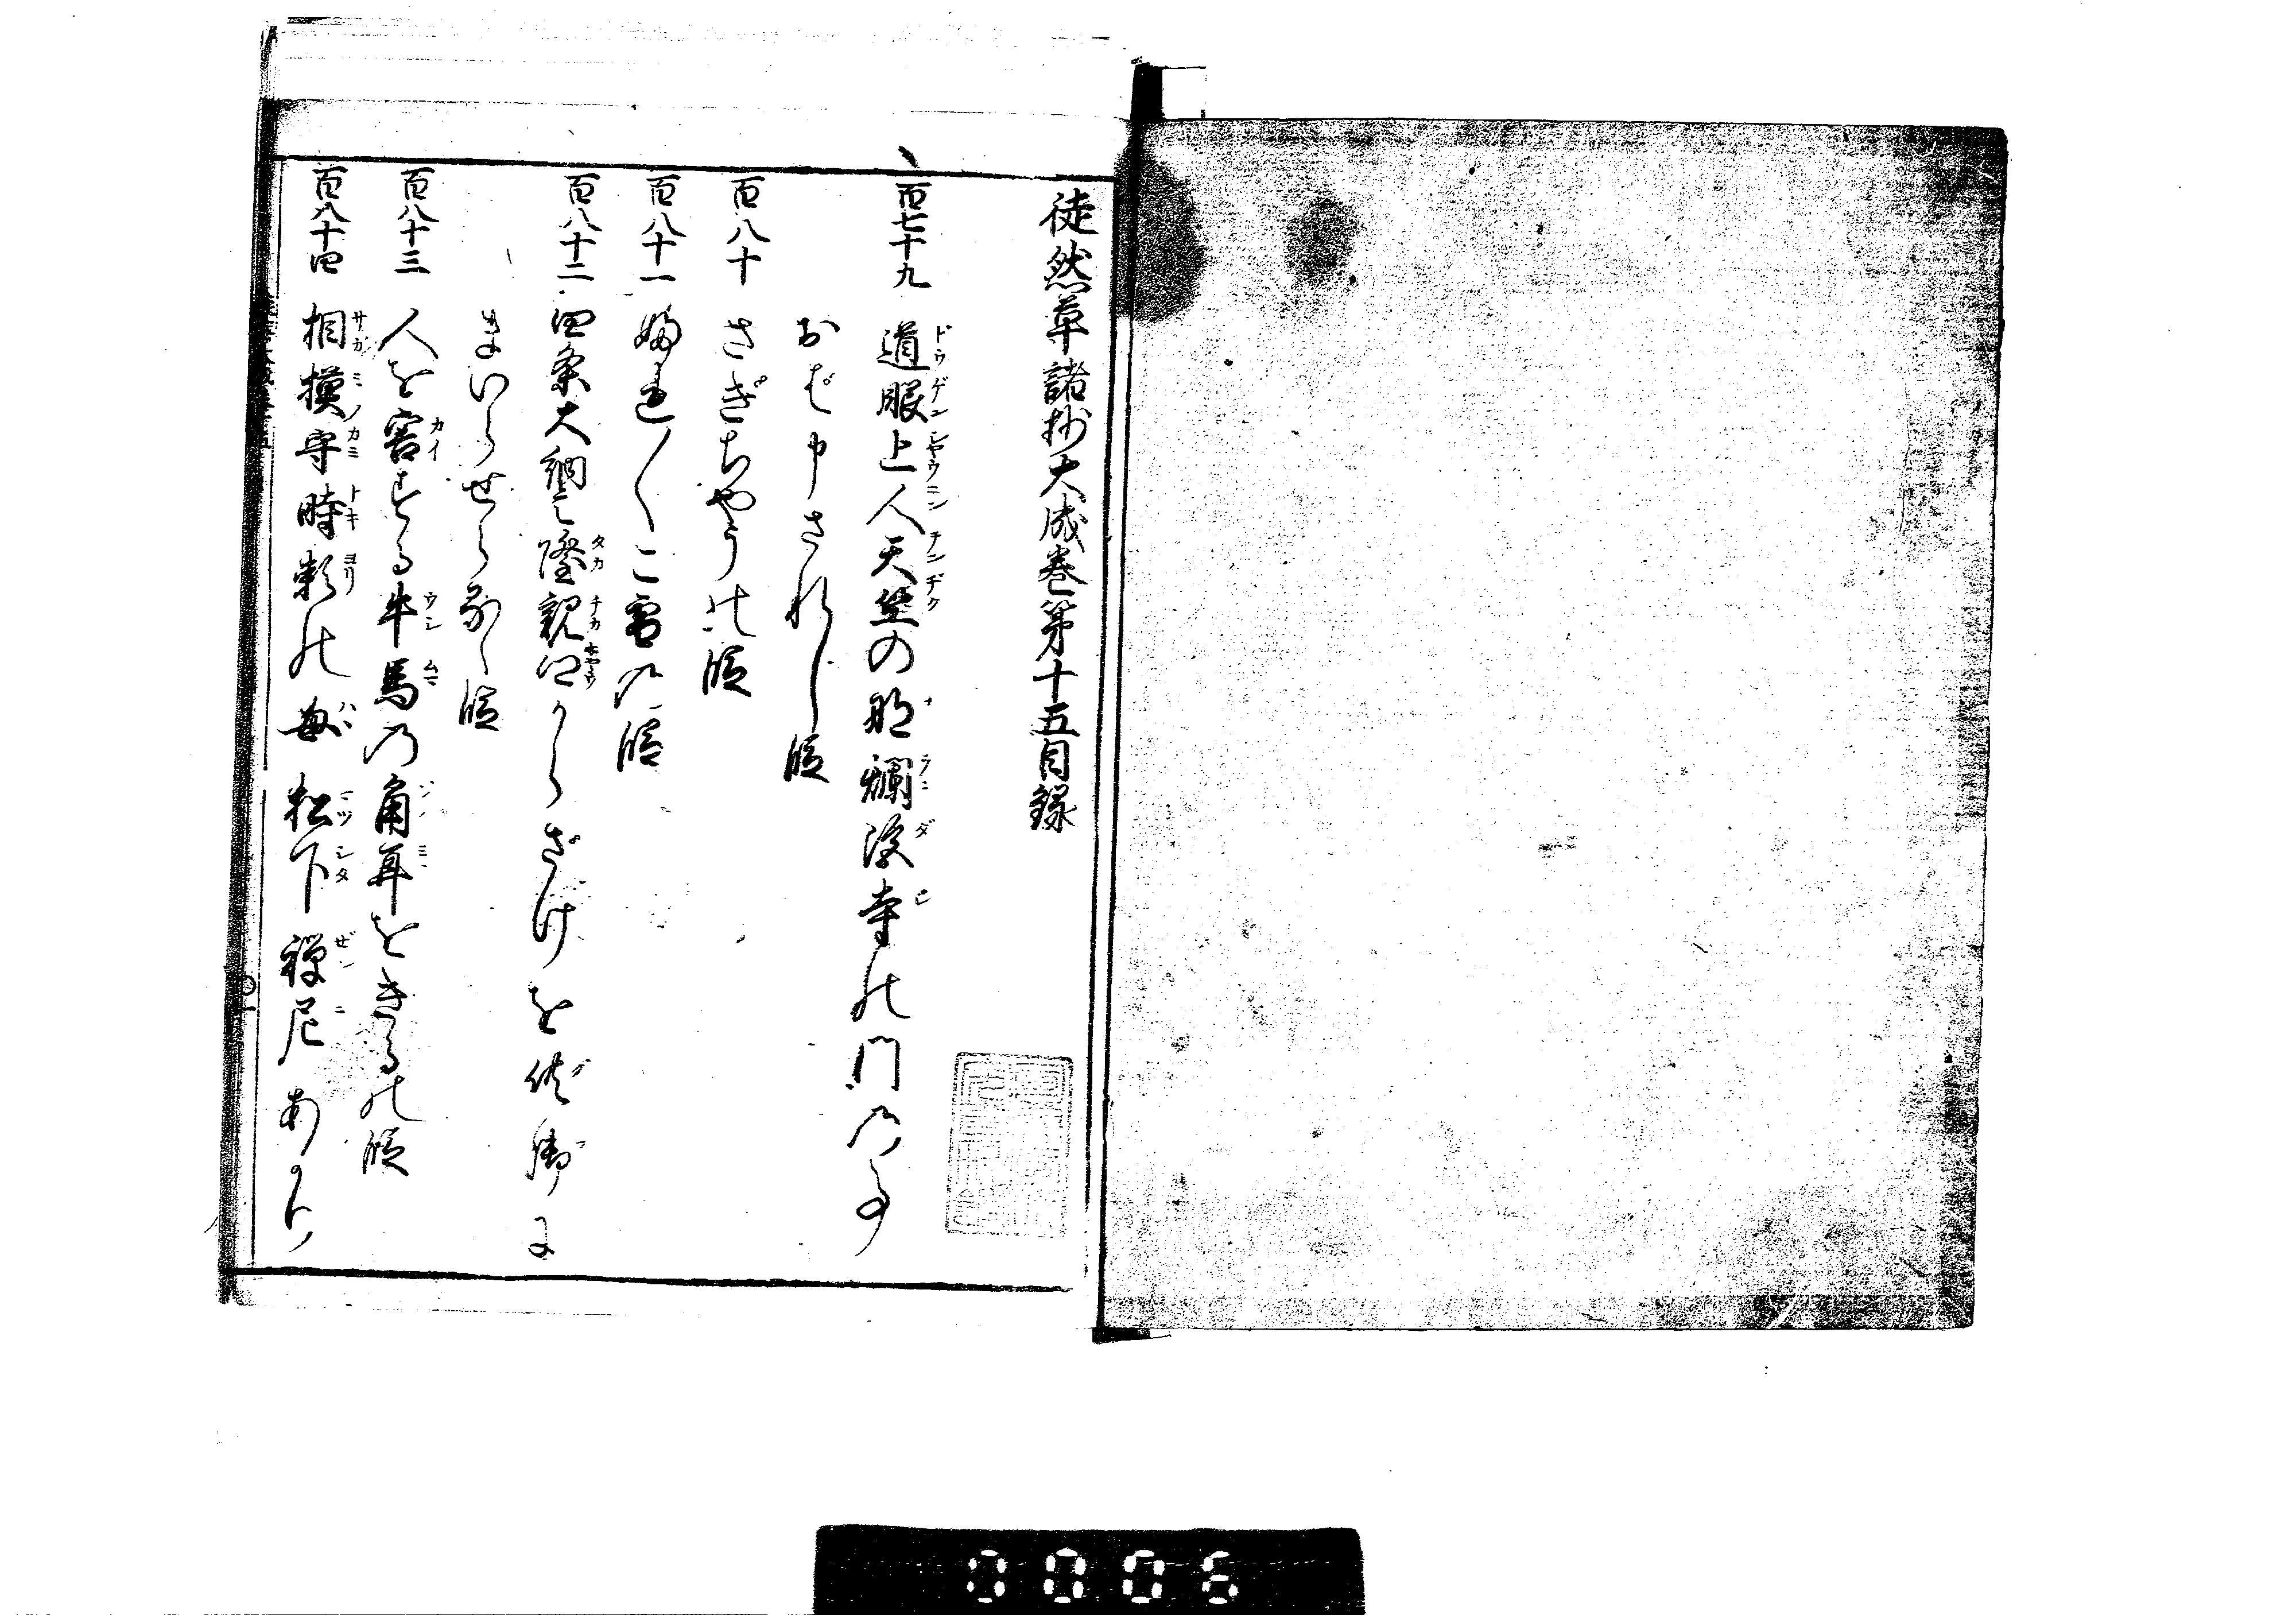 徒然草諸抄大成巻第十五目録
百七十九 道眼上人天竺の那爛陀寺の門の事
おぼ申されし段
百八十 さぎちやうの段
百八十一 ふれ〳〵こ雪の段
百八十二 四条大納言隆親卿からざけを供御に
まいらせらるゝ段
百八十三 人を害する牛馬の角耳をきるの段
百八十四 相摸守時頼の母松下禅尼あかり
0006